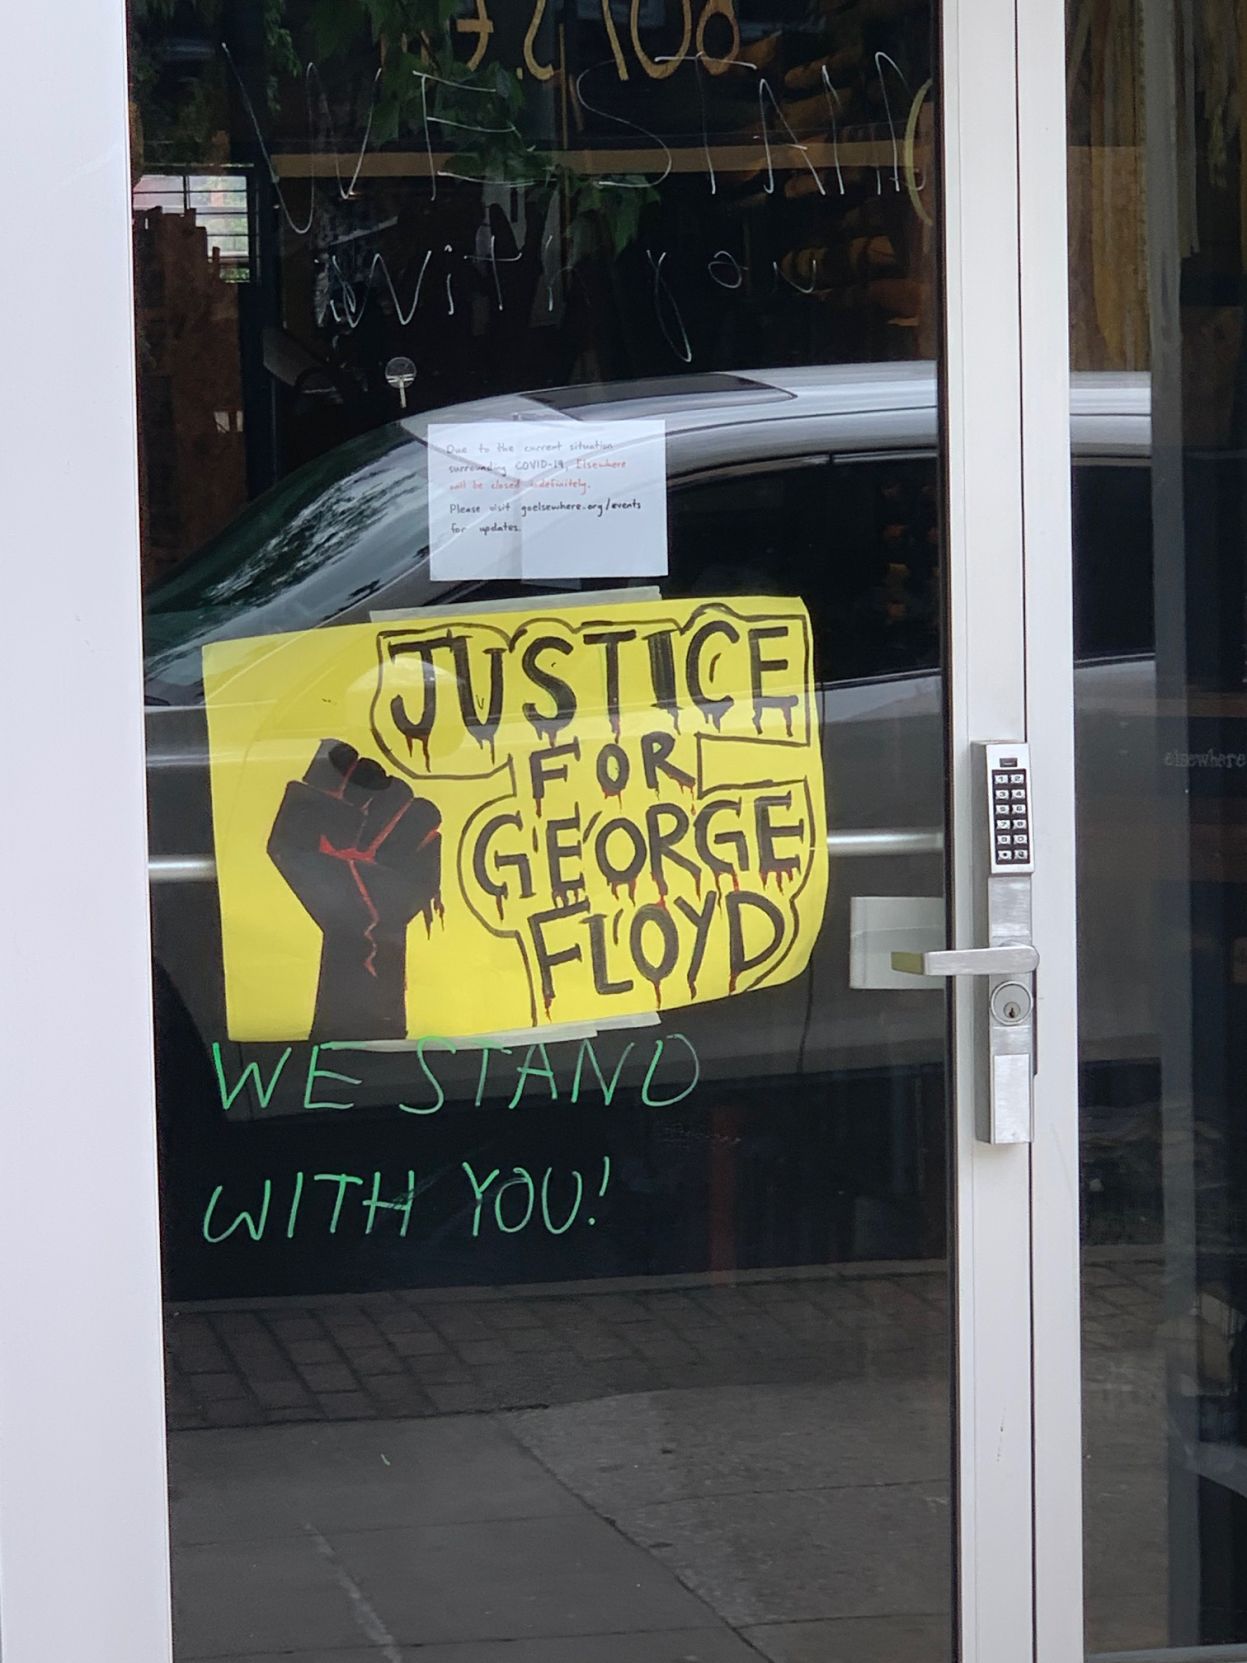 WE STAND
with you
Due to the current situation
surrounding COVID-19, Elsewhere
will be closed indefinitely.
Please visit goelsewhere.org/events
for updates.
JUSTICE
FOR
GEORGE
FLOYD
WE STAND
WITH YOU!
elsewhere